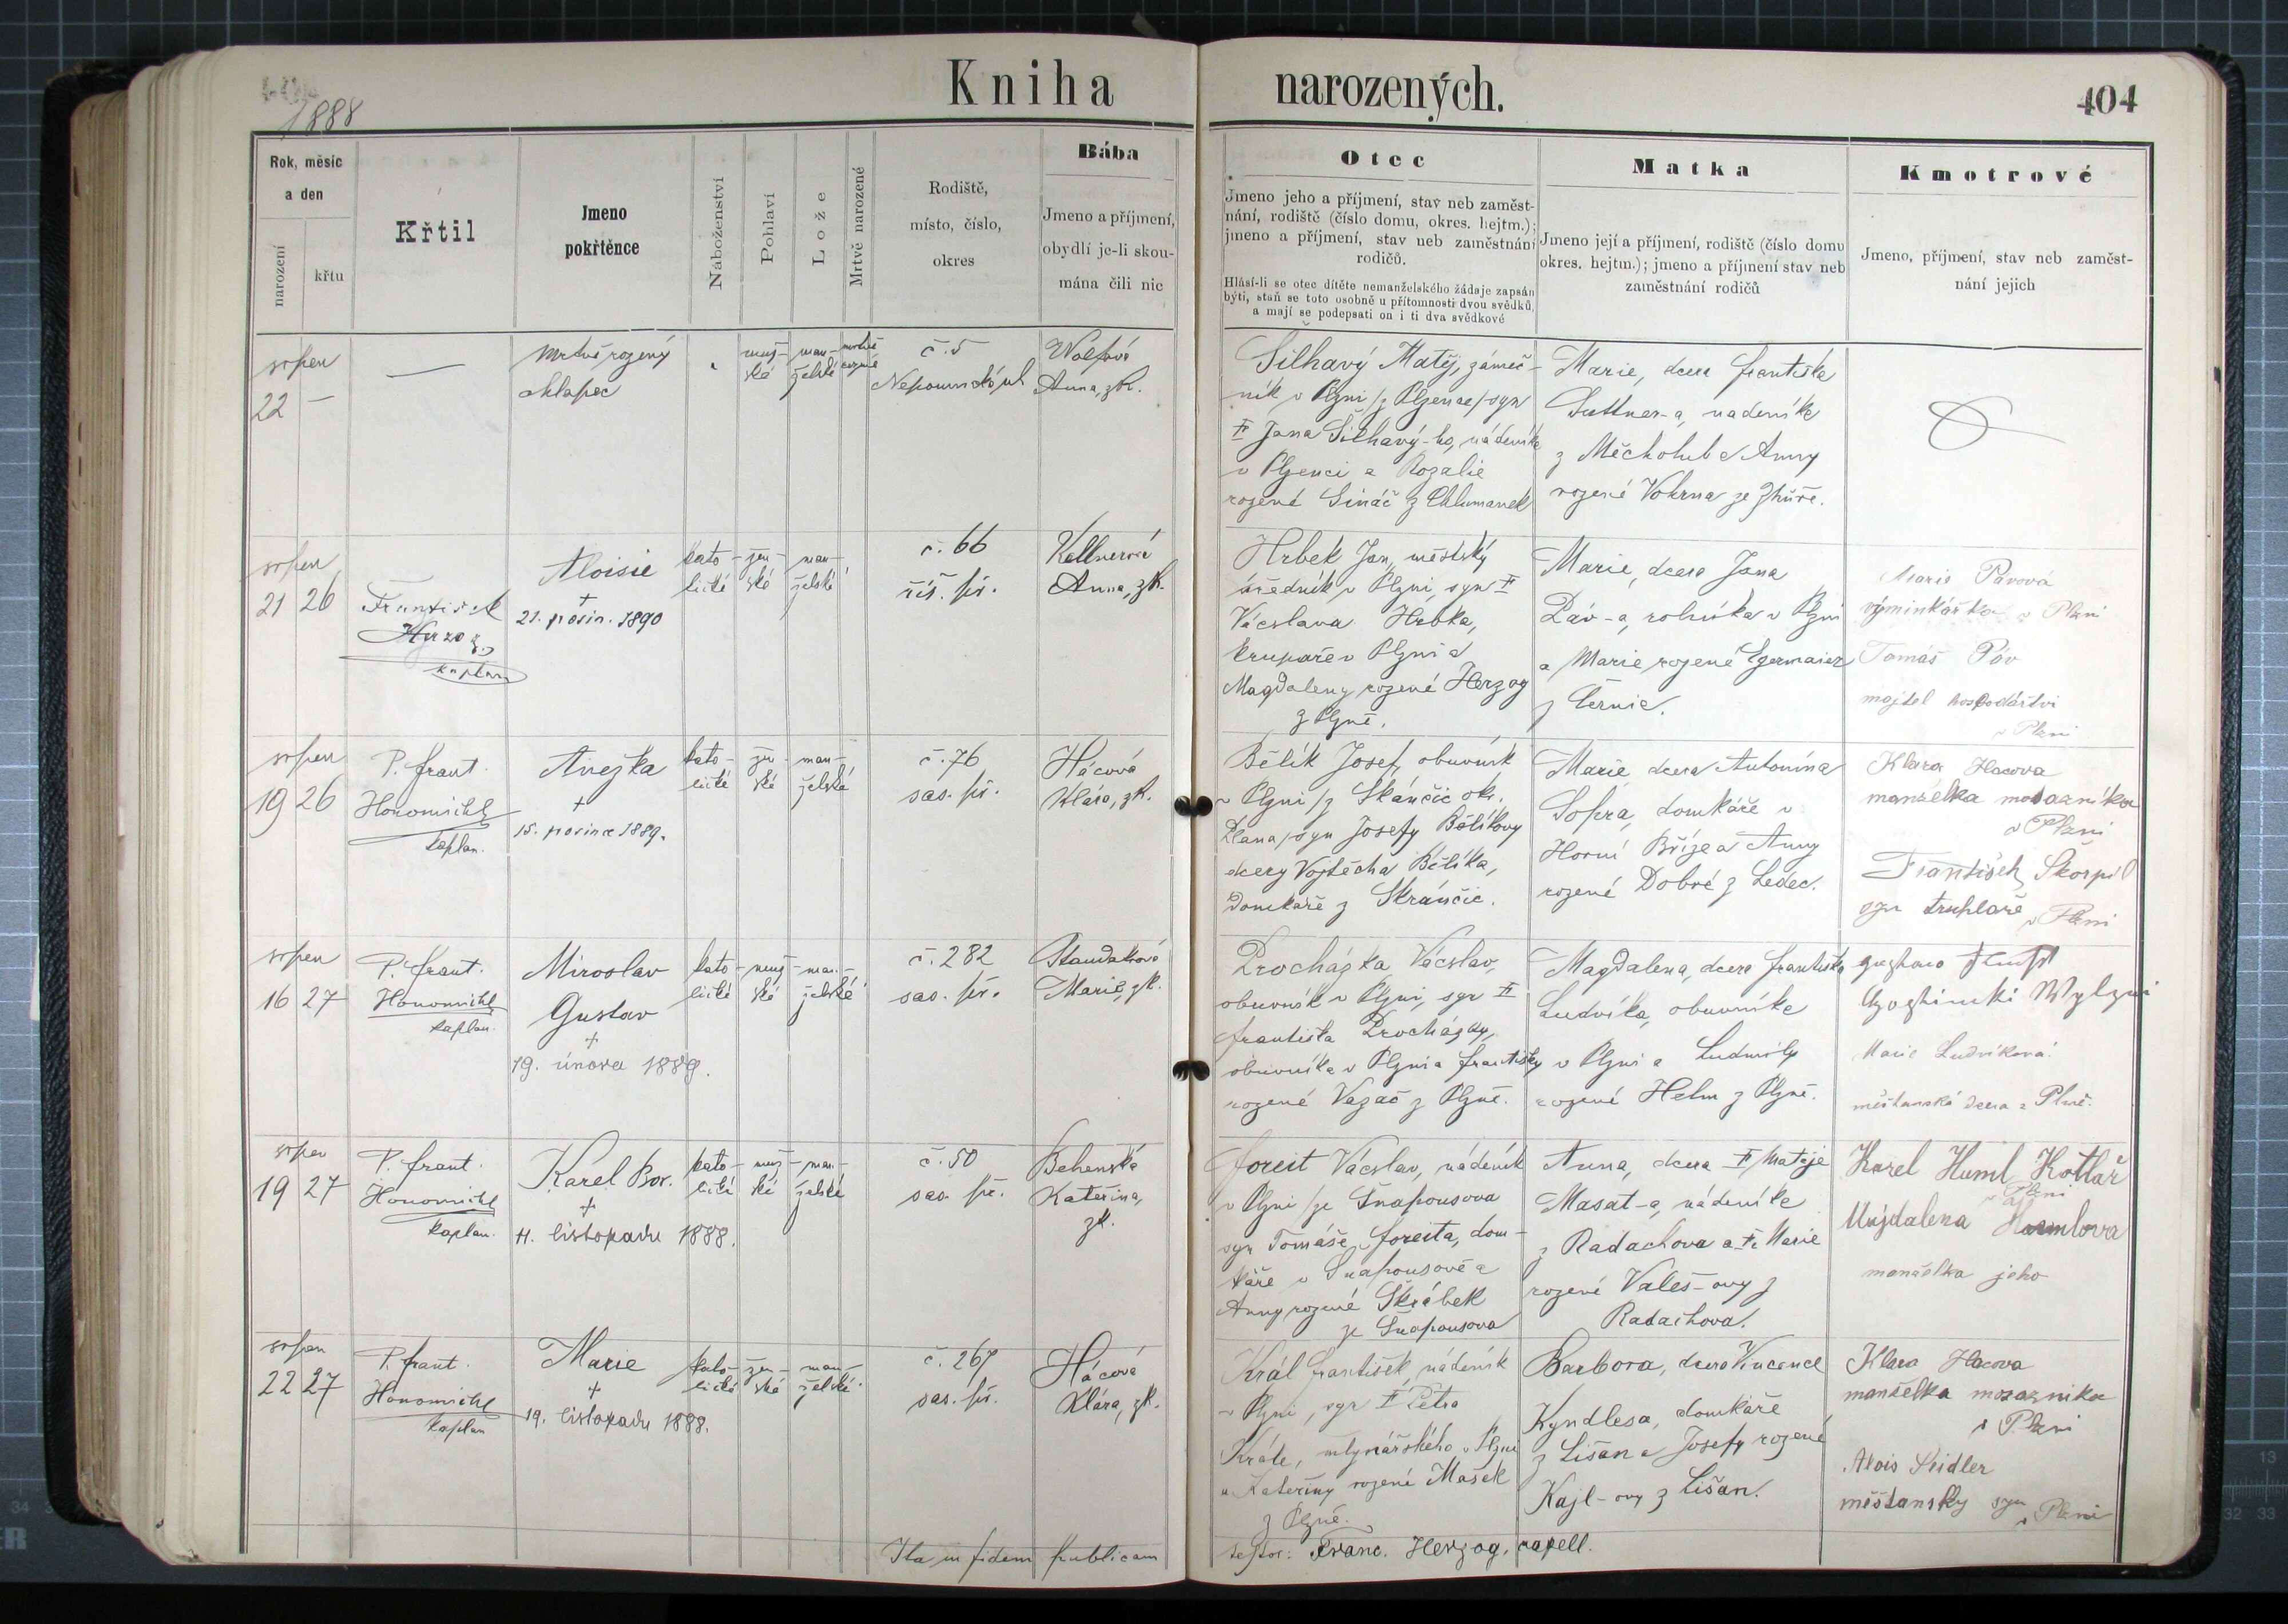 Kniha narozených.
1888
404
Rok, měsíc
a den
narození
křtu
Křtil
Jmeno
pokřtěnce
Náboženství
Pohlaví
Lože
Mrtvě narozené
Rodiště,
místo, číslo,
okres
Bába
Jmeno a příjmení,
obydlí je-li skou-
mána čili nic
Otec
Jmeno jeho a příjmení, stav neb zaměst-
nání, rodiště (číslo domu, okres. hejtm.);
jmeno a příjmení, stav neb zaměstnání
rodičů.
Hlásí-li se otec dítěte nemanželského žádaje zapsán
býti, staň se toto osobně u přítomnosti dvou svědků,
a mají se podepsati on i ti dva svědkové
Matka
Jmeno její a příjmení, rodiště (číslo domu
okres. hejtm.); jmeno a příjmení stav neb
zaměstnání rodičů
Kmotrové
Jmeno, příjmení, stav neb zaměst-
nání jejich
srpen
22 —
—
Mrtvě rozený
chlapec
muž-
ské
man-
želské
mrtvě
rozené
č. 5
Nepomucká ul
Wolfová
Anna, zk.
Šilhavý Matěj, zámeč-
ník v Plzni /z Plzence/ syn
Jana Šilhavý-ho, nádeníka
v Plzenci a Rozalie
rozené Sináč z Chlumanek
Marie, dcera Františka
Suttner-a, nadeníka
z Měcholub a Anny
rozené Vokrna ze Zhůře.
srpen
21 26
František
Herzog,
kaplan
Aloisie
+
21. prosin. 1890
kato-
lické
žen-
ské
man-
želské
č. 66
říš. př.
Kellnerová
Anna, zk.
Hrbek Jan, městský
úředník v Plzni, syn
Václava Hrbka,
krupaře v Plzni a
Magdaleny rozené Herzog
z Plzně.
Marie, dcera Jana
Páv-a, rolníka v Plzni
a Marie rozené Egermaier
z Černic.
Marie Pavová
výminkářka v Plzni
Tomáš Páv
majtel hospodářtví
v Plzni
srpen
19 26
P. Frant.
Honomichl
kaplan.
Anežka
+
15. prosince 1889.
kato-
lické
žen-
ské
man-
želské
č. 76
sas. př.
Hácová
Klára, zk.
Bělík Josef, obuvník
v Plzni /z Skánčic okr.
Plana/ syn Josefy Bělíkovy
dcery Vojtěcha Bělíka,
domkaře z Skránčic.
Marie dcera Antonína
Sopra, domkáře v
Horní Bříze a Anny
rozené Dobré z Ledec.
Klara Hacova
manželka mosazníka
v Plzni
František Škorpil
syn truhlaře v Plzni
srpen
16 27
P. Frant.
Honomichl
kaplan.
Miroslav
Gustav
+
19. února 1889.
kato-
lické
muž-
ské
man-
želské
č. 282
sas. př.
Standaková
Marie, zk.
Procházka Václav,
obuvník v Plzni, syn
Františka Procházky,
obuvníka v Plzni a Františky
rozené Vazač z Plzně.
Magdalena, dcera Františka
Ludvíka, obuvníka
v Plzni a Ludmily
rozené Helm z Plzně.
Marie Ludvíková
měšťanská dcera z Plzně.
srpen
19 27
P. Frant.
Honomichl
kaplan.
Karel Bor.
+
11. listopadu 1888.
kato-
lické
muž-
ské
man-
želské
č. 50
sas. př.
Behenská
Kateřina,
zk.
Foreit Václav, nádeník
v Plzni /ze Šnapousova
syn Tomáše Foreita, dom-
káře v Šnapousově a
Anny rozené Škrábek
ze Šnapousova
Anna, dcera Matěje
Masat-a, nádeníka
z Radachova a Marie
rozené Valeš-ovy z
Radachova.
Karel Huml Kotlář
v Plzni
Majdalena Humlova
manželka jeho
srpen
22 27
P. Frant.
Honomichl
kaplan
Marie
+
19. listopadu 1888.
kato-
lické
žen-
ské
man-
želské
č. 267
sas. př.
Hácová
Klára, zk.
Král František, nádeník
v Plzni, syn Petra
Krále, mlynářského v Plzni
a Kateřiny rozené Mašek
z Plzně.
Barbora, dcera Vincence
Kyndlesa, domkáře
z Lišan a Josefy rozené
Kajl-ovy z Lišan.
Klara Hacova
manželka mosaznika
v Plzni
Alois Seidler
měšťansky syn v Plzni
Ita in fidem publicam
testor: Franc. Herzog, capell.